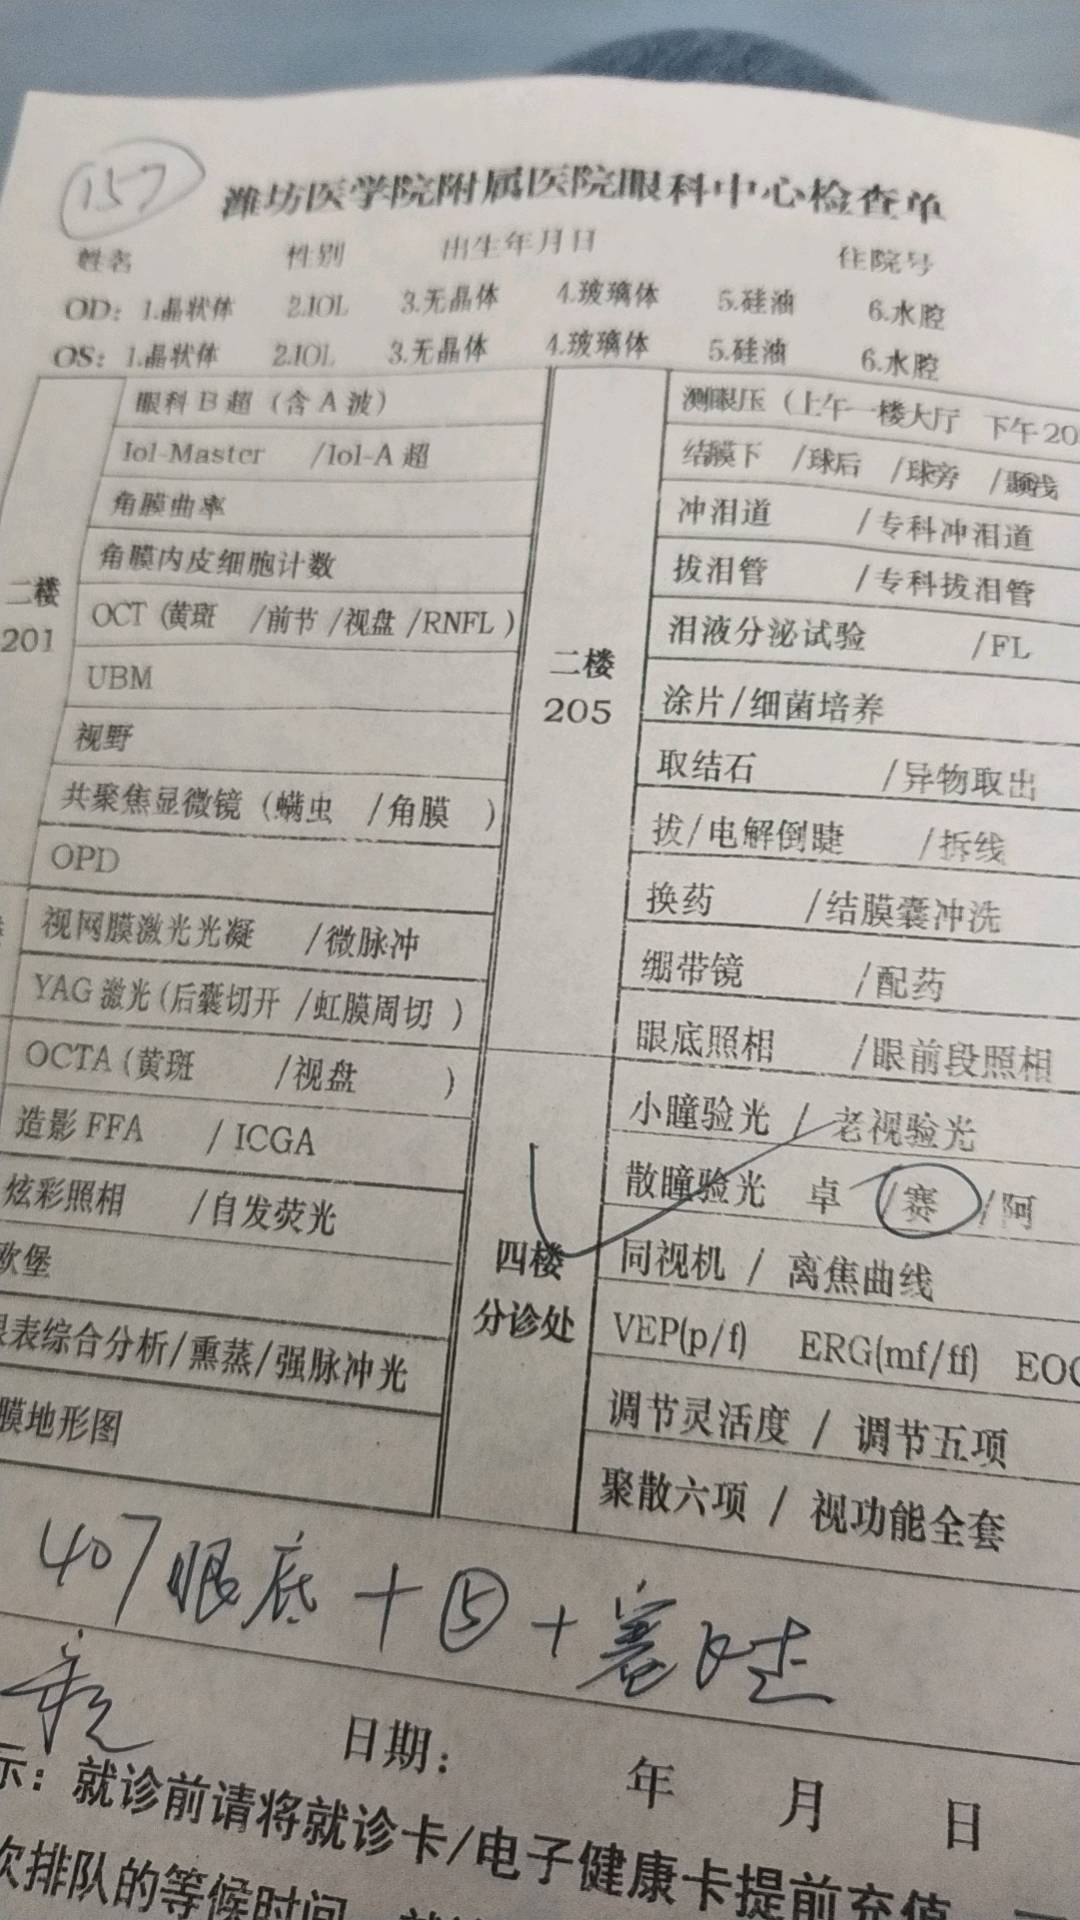 157
潍坊医学院附属医院眼科中心检查单
姓名 性别 出生年月日 住院号
OD: 1.晶状体 2.IOL 3.无晶体 4.玻璃体 5.硅油 6.水腔
OS: 1.晶状体 2.IOL 3.无晶体 4.玻璃体 5.硅油 6.水腔
二楼
201
眼科B超（含A波）
Iol-Master /Iol-A超
角膜曲率
角膜内皮细胞计数
OCT (黄斑 /前节 /视盘 /RNFL )
UBM
视野
共聚焦显微镜（螨虫 /角膜 ）
OPD
视网膜激光光凝 /微脉冲
YAG激光(后囊切开 /虹膜周切 )
OCTA (黄斑 /视盘 )
造影FFA / ICGA
炫彩照相 /自发荧光
欧堡
表综合分析/熏蒸/强脉冲光
膜地形图
二楼
205
测眼压（上午一楼大厅 下午20
结膜下 /球后 /球旁 /颞浅
冲泪道 /专科冲泪道
拔泪管 /专科拔泪管
泪液分泌试验 /FL
涂片/细菌培养
取结石 /异物取出
拔/电解倒睫 /拆线
换药 /结膜囊冲洗
绷带镜 /配药
眼底照相 /眼前段照相
四楼
分诊处
小瞳验光 / 老视验光
散瞳验光 卓 /赛 /阿
同视机 / 离焦曲线
VEP(p/f) ERG(mf/ff) EO
调节灵活度 / 调节五项
聚散六项 / 视功能全套
407眼底+⑤+赛
日期: 年 月 日
示: 就诊前请将就诊卡/电子健康卡提前充值
次排队的等候时间